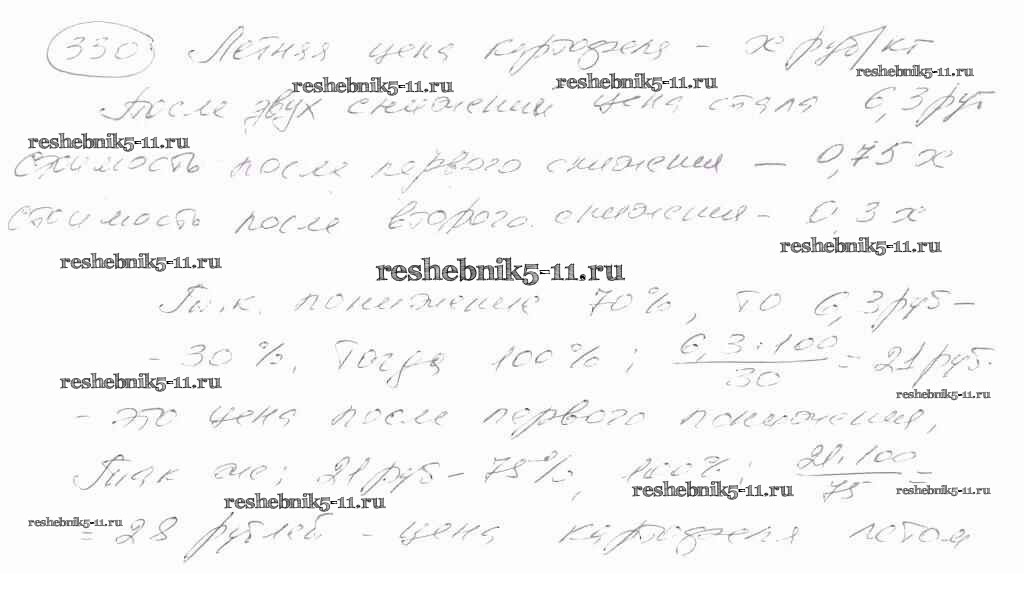 330 Летняя цена картофеля - x руб/кг
reshebnik5-11.ru reshebnik5-11.ru reshebnik5-11.ru
После двух снижений цена стала 6,3 руб
reshebnik5-11.ru
стоимость после первого снижения — 0,75 x
стоимость после второго снижения - 0,3 x
reshebnik5-11.ru reshebnik5-11.ru
reshebnik5-11.ru
Т.к. понижение 70%, то 6,3 руб -
- 30%. Тогда 100%: 6,3·100/30 = 21 руб.
reshebnik5-11.ru reshebnik5-11.ru
- это цена после первого понижения,
Так же: 21 руб - 75%, 100%: 21·100/75 =
reshebnik5-11.ru reshebnik5-11.ru reshebnik5-11.ru
reshebnik5-11.ru
= 28 рублей - цена картофеля летом